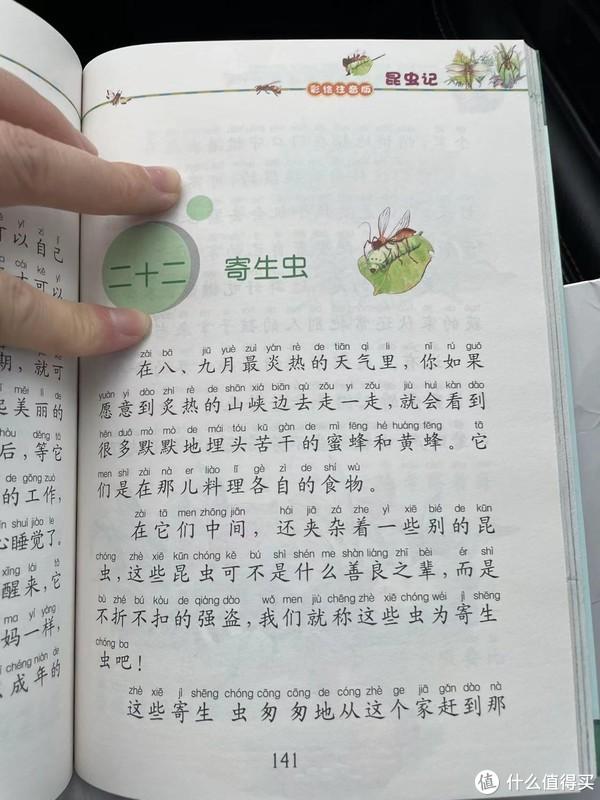 昆虫记
彩绘注音版
二十二
寄生虫
zài bā jiǔ yuè zuì yán rè de tiān qì lǐ nǐ rú guǒ
在八、九月最炎热的天气里，你如果
yuàn yì dào zhì rè de shān xiá biān qù zǒu yi zǒu jiù huì kàn dào
愿意到炙热的山峡边去走一走，就会看到
hěn duō mò mò de mái tóu kǔ gàn de mì fēng hé huáng fēng tā
很多默默地埋头苦干的蜜蜂和黄蜂。它
men shì zài nà er liào lǐ gè zì de shí wù
们是在那儿料理各自的食物。
zài tā men zhōng jiān hái jiā zá zhe yì xiē bié de kūn
在它们中间，还夹杂着一些别的昆
chóng zhè xiē kūn chóng kě bú shì shén me shàn liáng zhī bèi ér shì
虫，这些昆虫可不是什么善良之辈，而是
bù zhé bú kòu de qiáng dào wǒ men jiù chēng zhè xiē chóng wéi jì shēng
不折不扣的强盗，我们就称这些虫为寄生
chóng ba
虫吧！
zhè xiē jì shēng chóng cōng cōng de cóng zhè ge jiā gǎn dào nà
这些寄生虫匆匆地从这个家赶到那
141
可以自己
可以
期，就可
měi lì de
起美丽的
hòu děng tā
后，等它
de gōng zuò
的工作，
shuì jiào le
心睡觉了。
xǐng lái tā
醒来，它
mā yí yàng
妈一样，
chéng nián de
成年的
值 什么值得买